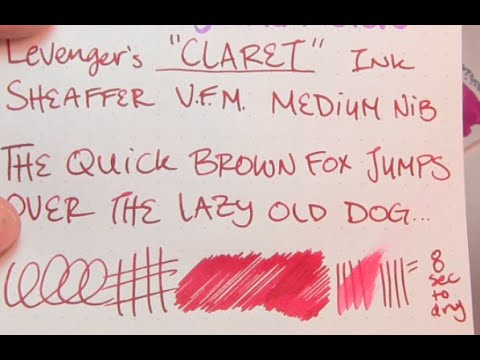 Levenger's "CLARET" INK
SHEAFFER V.F.M. MEDIUM NIB
THE QUICK BROWN FOX JUMPS
OVER THE LAZY OLD DOG...
= 8
sec
to
dry